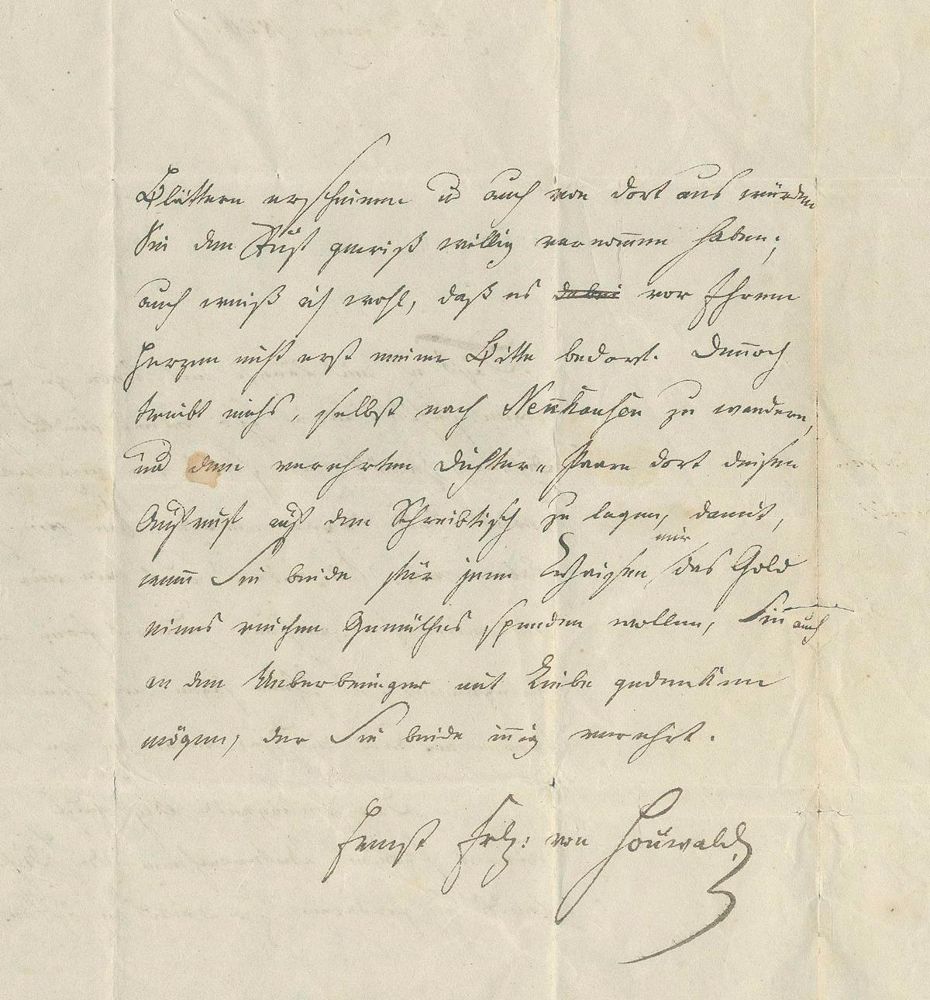 Blättern erscheinen u auch von dort aus würden
Sie den Ruf gewiß willig vernommen haben;
auch weiß ich wohl, daß es dabei vor Ihrem
Herzen nicht erst meiner Bitte bedarf. Dennoch
treibt michs, selbst nach Nennhausen zu wandern,
und dem verehrten Dichter-Paare dort diesen
Aufruf auf den Schreibtisch zu legen, damit,
wenn Sie beide für jene Waisen mir das Gold
eines reichen Gemüthes spenden wollen, Sie auch
an den Ueberbringer mit Liebe gedenken
mögen, der Sie beide innig verehrt.
Ernst Frh: von Houwald.